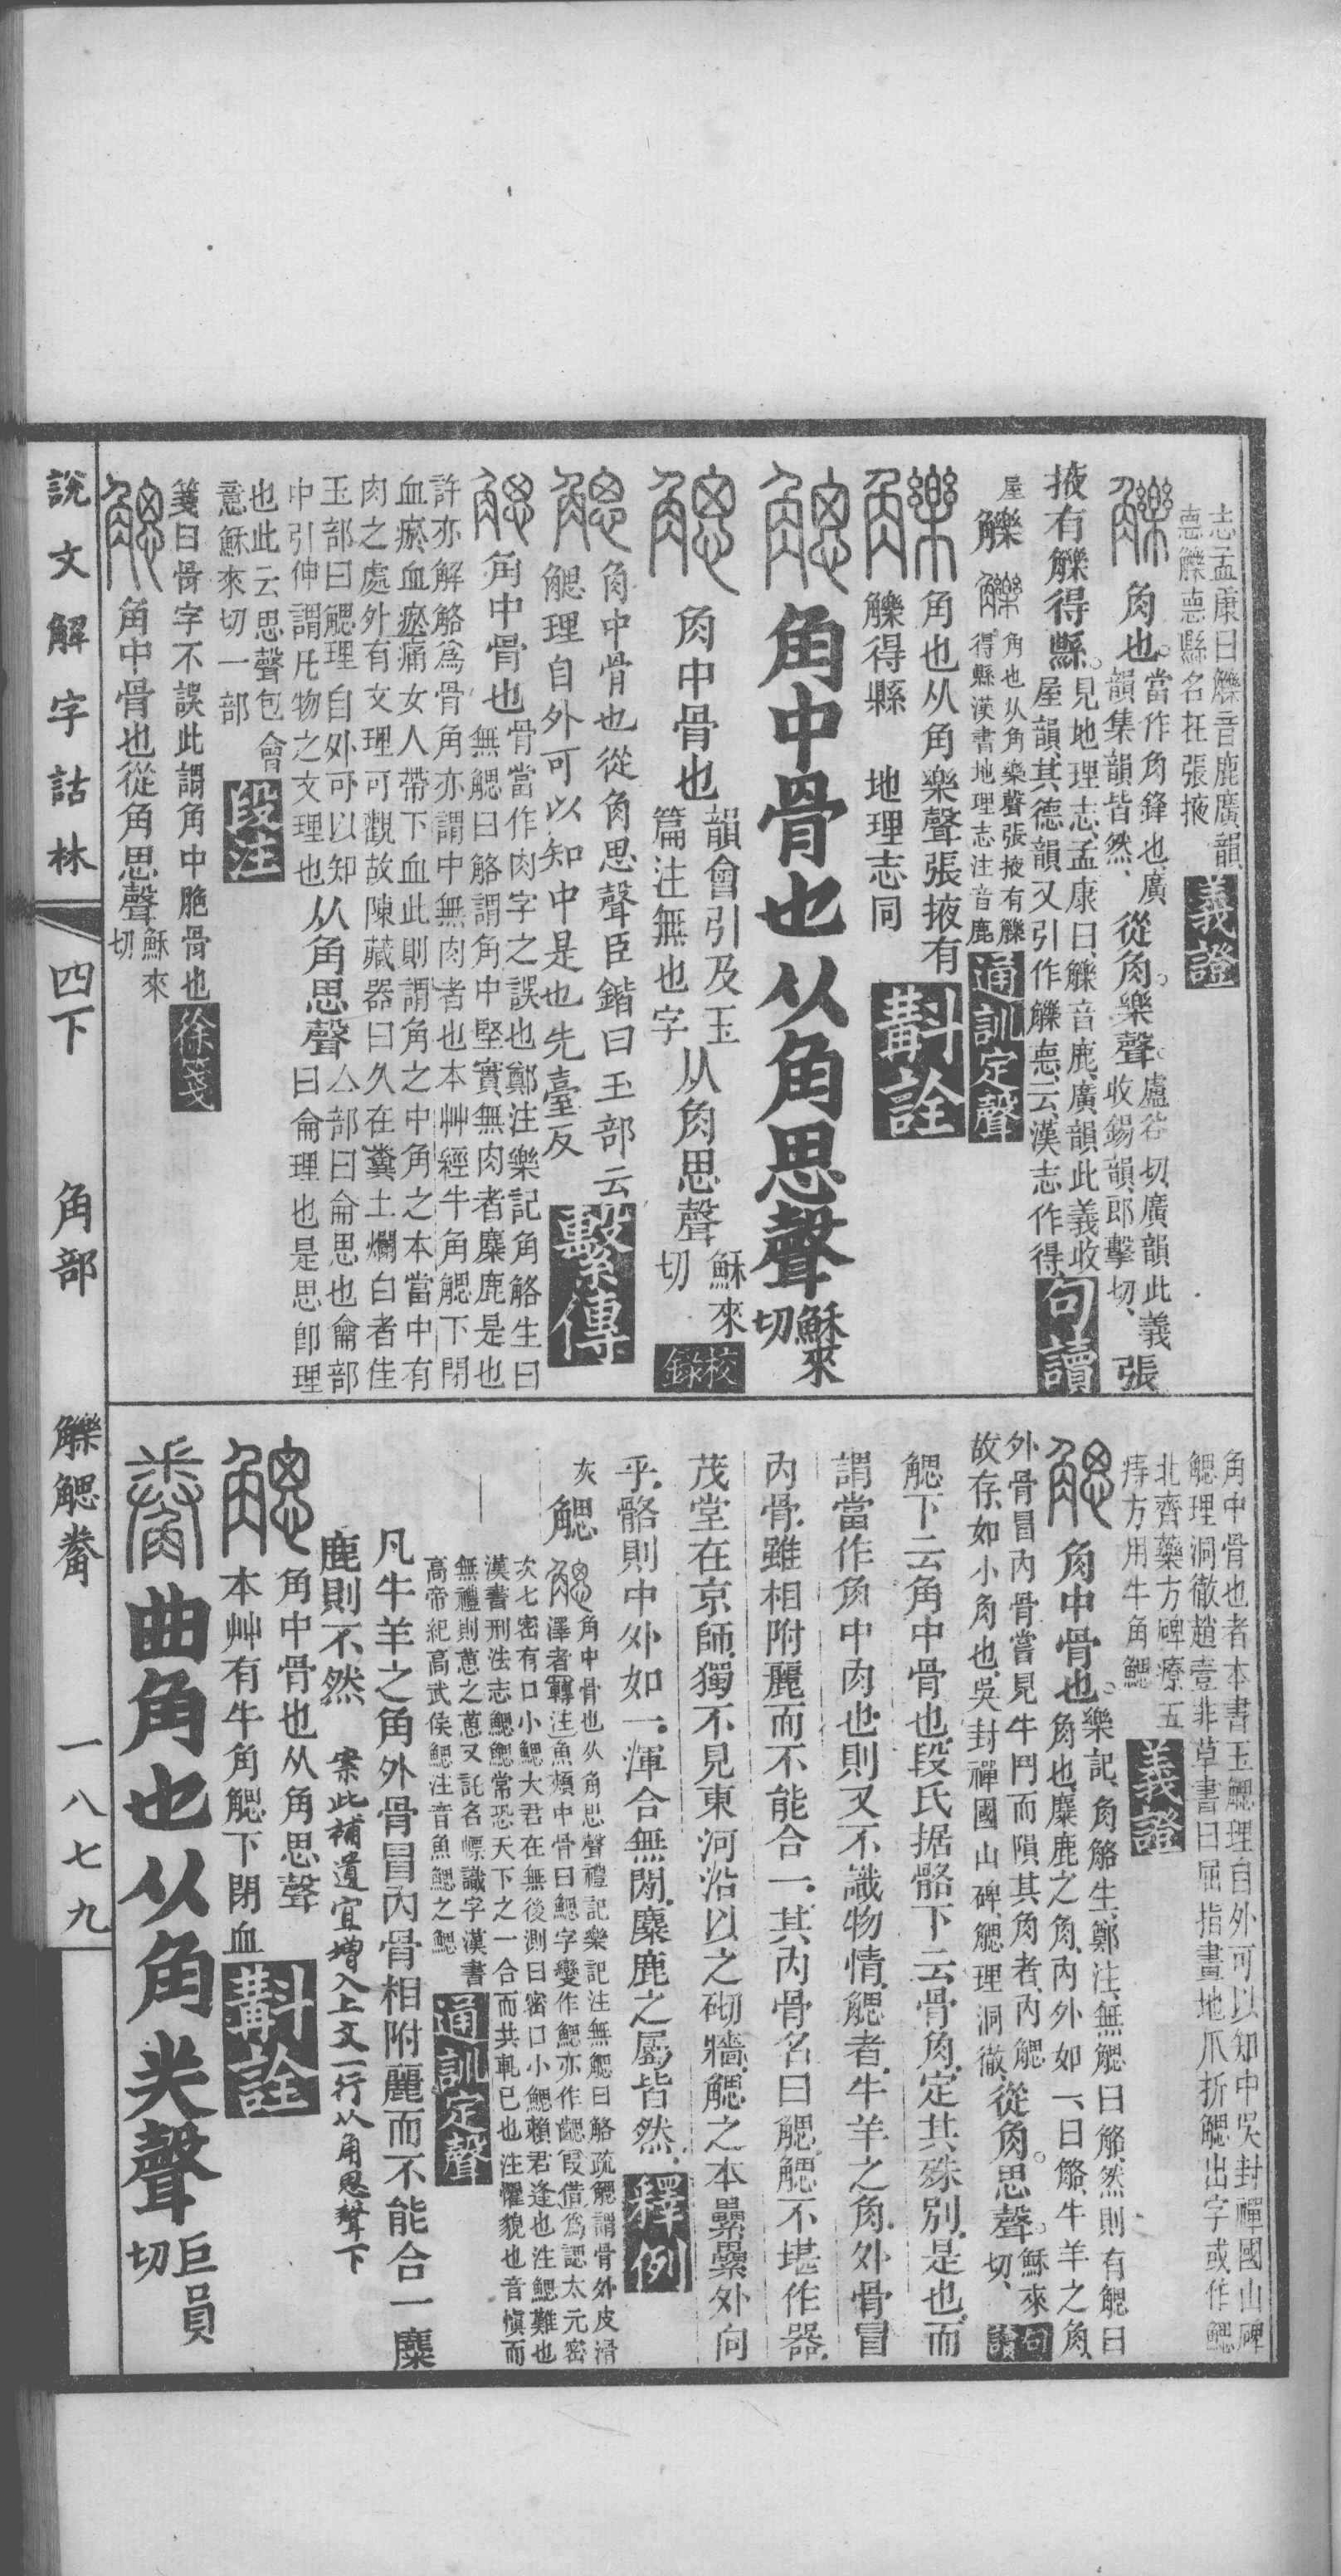 志孟康曰觻音鹿廣韻
悳觻悳縣名在張掖
義證
角也
當作角鋒也廣
韻集韻皆然、
從角樂聲
盧谷切廣韻此義
收錫韻、郎擊切、
張
掖有觻得縣
見地理志、孟康曰、觻音鹿、廣韻此義收
屋韻、其德韻又引作觻悳、云、漢志作得
句讀
屋
觻
角也从角樂聲張掖有觻
得縣漢書地理志注音鹿
通訓定聲
角也从角樂聲張掖有
觻得縣 地理志同
斠詮
角中骨也从角思聲
穌來
切
角中骨也
韻會引及玉
篇注無也字
从角思聲
穌來
切
校錄
角中骨也從角思聲臣鍇曰玉部云
䚡理自外可以知中是也先臺反
繫傳
角中骨也
骨當作肉字之誤也鄭注樂記角觡生曰
無䚡曰觡謂角中堅實無肉者麋鹿是也
許亦解觡爲骨角亦謂中無肉者也本艸經牛角䚡下閉
血瘀血瘀痛女人帶下血此則謂角之中角之本當中有
肉之處外有文理可觀故陳藏器曰久在糞土爛白者佳
玉部曰䚡理自外可以知
中引伸謂凡物之文理也
从角思聲
亼部曰侖思也龠部
曰侖理也是思卽理
也此云思聲包會
意穌來切一部
段注
箋曰骨字不誤此謂角中脆骨也
徐箋
角中骨也從角思聲
穌來
切
角中骨也者本書玉䚡理自外可以知中吳封禪國山碑
䚡理洞徹趙壹非草書曰屈指畫地爪折䚡出字或作鰓
北齊藥方碑療五
痔方用牛角鰓
義證
角中骨也
樂記、角觡生、鄭注、無䚡曰觡、然則有䚡曰
角也、麋鹿之角、內外如一、曰觡、牛羊之角、
外骨冒內骨嘗見牛鬥而隕其角者、內䚡
故存、如小角也、吳封禪國山碑、䚡理洞徹、
從角思聲
穌來
切、
句讀
䚡下云角中骨也段氏据骼下云骨角、定其殊別、是也、而
謂當作角中肉也、則又不識物情、䚡者、牛羊之角、外骨冒
內骨、雖相附麗而不能合一、其內骨名曰䚡、䚡不堪作器、
茂堂在京師、獨不見東河沿以之砌牆、䚡之本纍纍外向
乎、骼則中外如一、渾合無閒、麋鹿之屬皆然、
釋例
灰
䚡
角中骨也从角思聲禮記樂記注無䚡曰觡疏䚡謂骨外皮滑
澤者轉注魚頰中骨曰䚡字變作鰓亦作䚡叚借爲諰太元密
次七密有口小鰓大君在無後測曰密口小鰓賴君逢也注鰓難也
漢書刑法志鰓鰓常恐天下之一合而共軋己也注懼貌也音愼而
無禮則葸之葸又託名幖識字漢書
高帝紀高武侯鰓注音魚鰓之鰓
通訓定聲
凡牛羊之角外骨冒內骨相附麗而不能合一麋
鹿則不然
案此補遺宜增入上文一行从角思聲下
角中骨也从角思聲
本艸有牛角䚡下閉血
斠詮
曲角也从角𢍏聲
巨員
切
說文解字詁林
四下
角部
觻䚡觠
一八七九